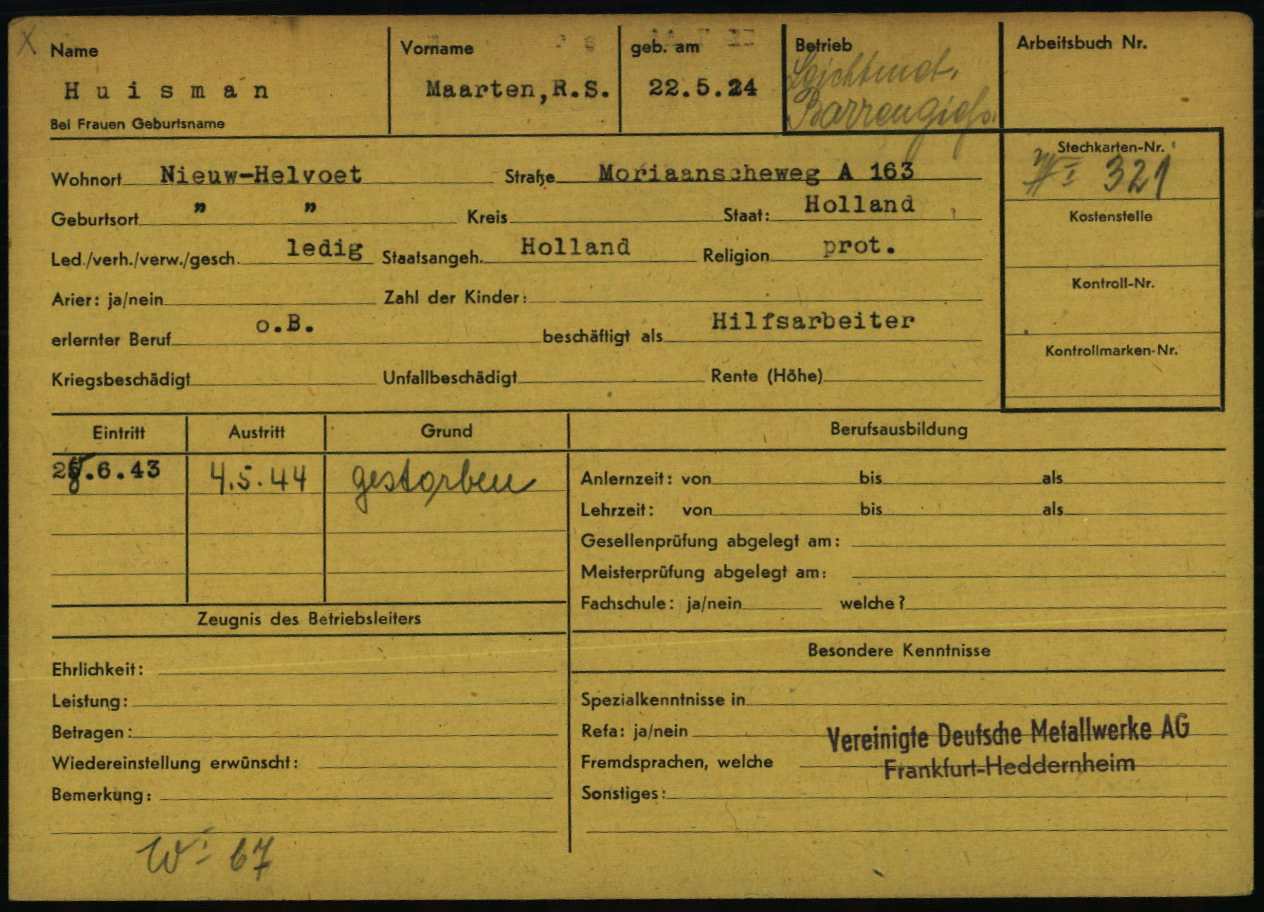 X Name Vorname geb. am Betrieb Arbeitsbuch Nr.
Huisman Maarten, R.S. 22.5.24
Bei Frauen Geburtsname
Stechkarten-Nr.
321
Wohnort Nieuw-Helvoet Straße Moriaanscheweg A 163
Geburtsort " " Kreis Staat: Holland
Kostenstelle
Led./verh./verw./gesch. ledig Staatsangeh. Holland Religion prot.
Arier: ja/nein Zahl der Kinder:
Kontroll-Nr.
erlernter Beruf o.B. beschäftigt als Hilfsarbeiter
Kontrollmarken-Nr.
Kriegsbeschädigt Unfallbeschädigt Rente (Höhe)
Eintritt Austritt Grund
28.6.43 4.5.44 gestorben
Zeugnis des Betriebsleiters
Ehrlichkeit:
Leistung:
Betragen:
Wiedereinstellung erwünscht:
Bemerkung:
W I 67
Berufsausbildung
Anlernzeit: von bis als
Lehrzeit: von bis als
Gesellenprüfung abgelegt am:
Meisterprüfung abgelegt am:
Fachschule: ja/nein welche?
Besondere Kenntnisse
Spezialkenntnisse in
Refa: ja/nein
Vereinigte Deutsche Metallwerke AG
Fremdsprachen, welche
Frankfurt-Heddernheim
Sonstiges: